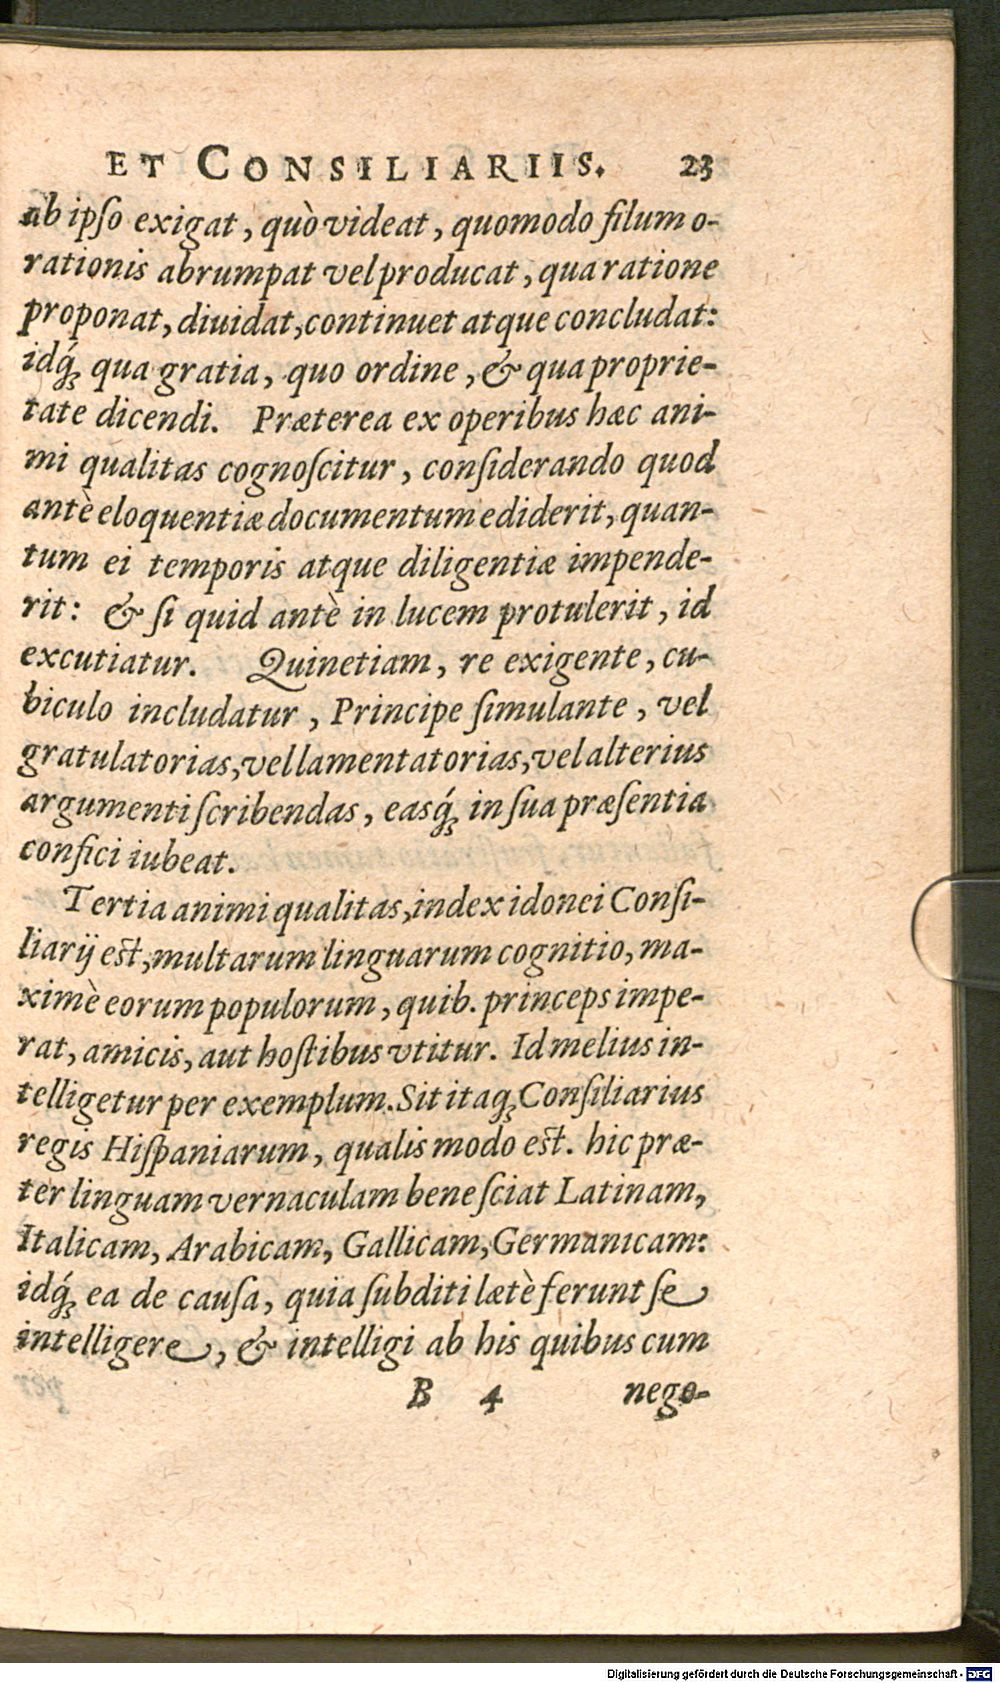 ET CONSILIARIIS. 23
ab ipſo exigat, quò videat, quomodo filum o-
rationis abrumpat vel producat, qua ratione
proponat, diuidat, continuet atque concludat:
idq́; qua gratia, quo ordine, & qua proprie-
tate dicendi. Præterea ex operibus hæc ani-
mi qualitas cognoſcitur, conſiderando quod
antè eloquentiæ documentum ediderit, quan-
tum ei temporis atque diligentiæ impende-
rit: & ſi quid antè in lucem protulerit, id
excutiatur. Quinetiam, re exigente, cu-
biculo includatur, Principe ſimulante, vel
gratulatorias, vel lamentatorias, vel alterius
argumenti ſcribendas, easq́; in ſua præſentia
confici iubeat.
Tertia animi qualitas, index idonei Conſi-
liarij eſt, multarum linguarum cognitio, ma-
ximè eorum populorum, quib. princeps impe-
rat, amicis, aut hoſtibus vtitur. Id melius in-
telligetur per exemplum. Sit itaq; Conſiliarius
regis Hiſpaniarum, qualis modo eſt. hic præ-
ter linguam vernaculam bene ſciat Latinam,
Italicam, Arabicam, Gallicam, Germanicam:
idq́; ea de cauſa, quia ſubditi lætè ferunt ſe
intelligere, & intelligi ab his quibus cum
B 4 nego-
Digitalisierung gefördert durch die Deutsche Forschungsgemeinschaft - DFG